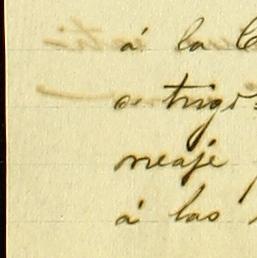 á la
trigo
meaje
á las